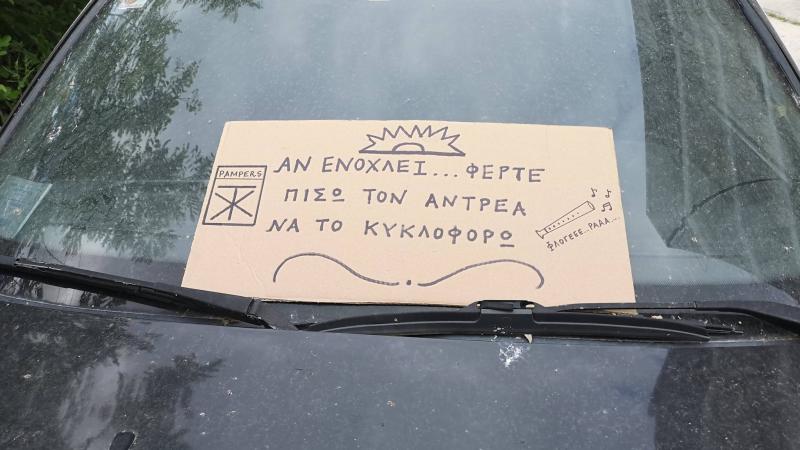 PAMPERS
ΑΝ ΕΝΟΧΛΕΙ...ΦΕΡΤΕ
ΠΙΣΩ ΤΟΝ ΑΝΤΡΕΑ
ΝΑ ΤΟ ΚΥΚΛΟΦΟΡΩ
ΦΛΟΓΕΣΕ...ΡΑΑΑ...